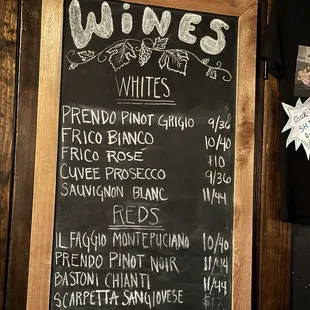 WINES
WHITES
PRENDO PINOT GRIGIO 9/36
FRICO BIANCO 10/40
FRICO ROSE $10
CUVEE PROSECCO 9/36
SAUVIGNON BLANC 11/44
REDS
IL FAGGIO MONTEPUCIANO 10/40
PRENDO PINOT NOIR 11/44
BASTONI CHIANTI 11/44
SCARPETTA SANGIOVESE